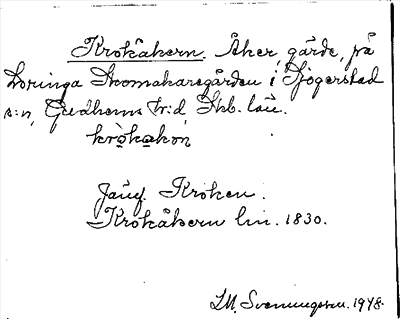 Krokåkern. Åker, gärde, på
Loringa Skomakaregården i Sjögerstad
s:n, Gudhems hr:d, Skb. län.
kròkakon
Jämf. Kroken.
Krokåkern lm. 1830.
I.M. Svenungsson. 1948.